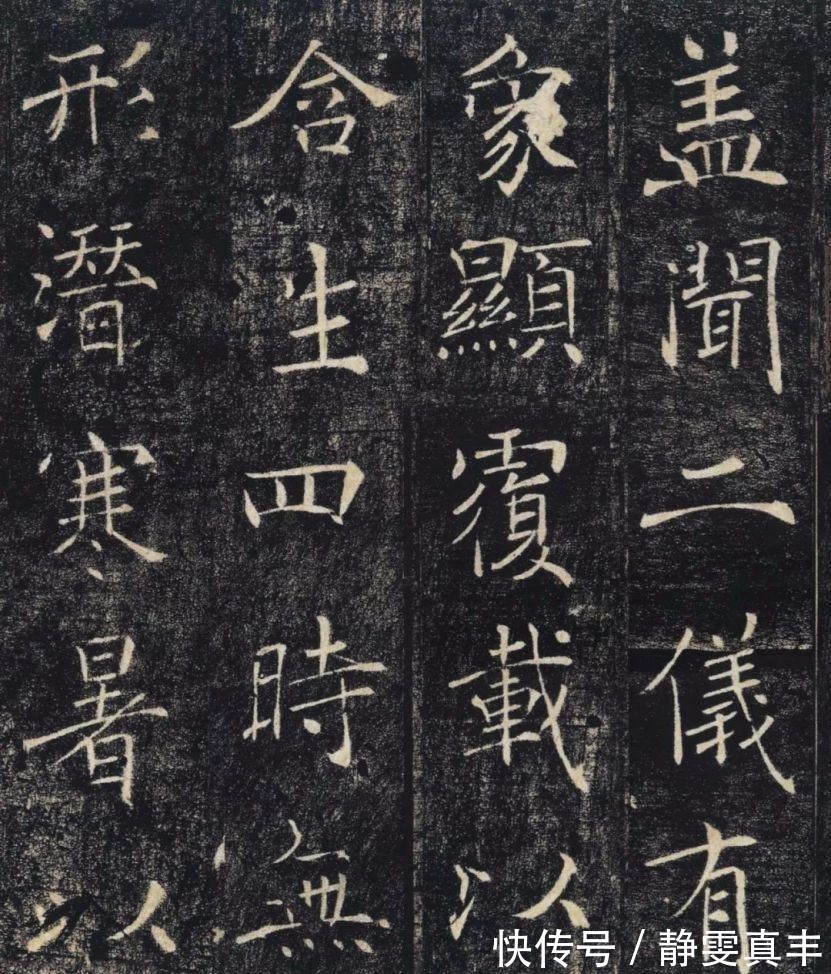 盖聞二儀有
象顯覆載以
含生四時無
形潛寒暑以
快传号/静雯真丰